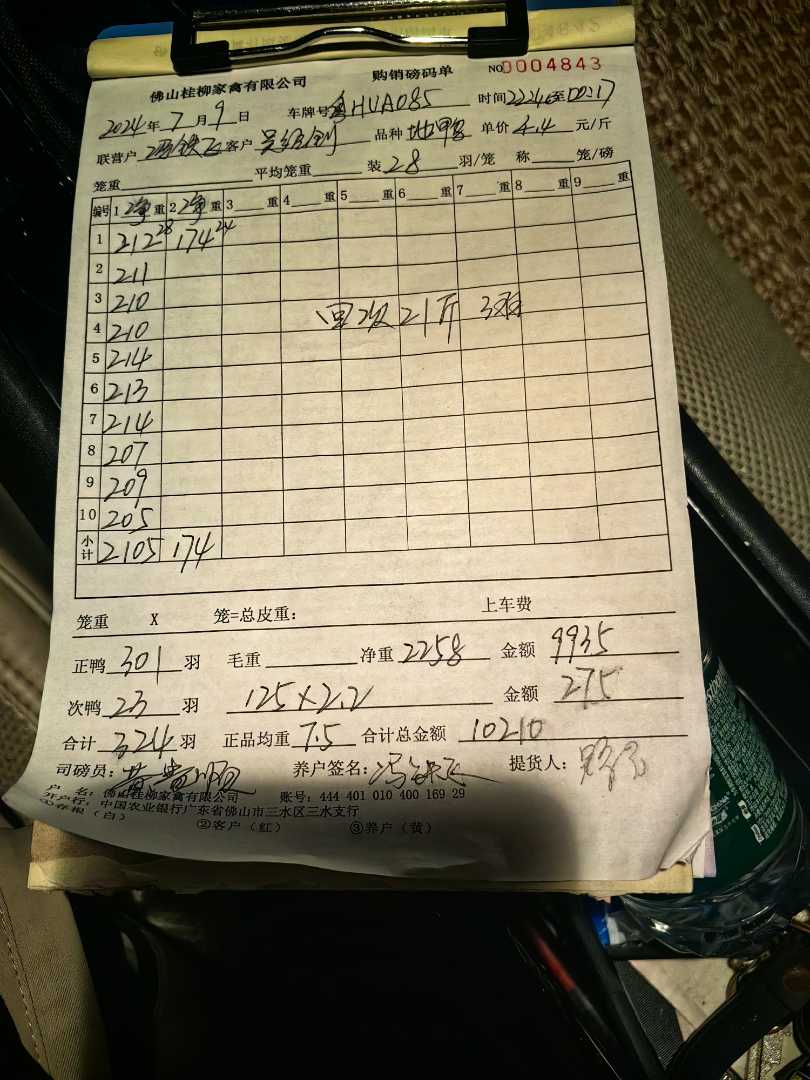 佛山桂柳家禽有限公司 购销磅码单 NO 0004843
2024年7月9日 车牌号粤HUA085 时间2224至00:17
联营户 冯铁飞 客户 品种 地鸭 单价 4.4 元/斤
笼重 平均笼重 装 28 羽/笼 称 笼/磅
编号 1 净重 2 净重 3 重 4 重 5 重 6 重 7 重 8 重 9 重
1 212 28 174 24
2 211
3 210
回次21斤 3羽
4 210
5 214
6 213
7 214
8 207
9 209
10 205
小计 2105 174
笼重 X 笼=总皮重: 上车费
正鸭 301 羽 毛重 净重 2258 金额 9935
次鸭 23 羽 125×2.2 金额 275
合计 324 羽 正品均重 7.5 合计总金额 10210
司磅员: 养户签名: 冯铁飞 提货人:
户名: 佛山桂柳家禽有限公司 账号: 444 401 010 400 169 29
开户行: 中国农业银行广东省佛山市三水区三水支行
①存根（白） ②客户（红） ③养户（黄）